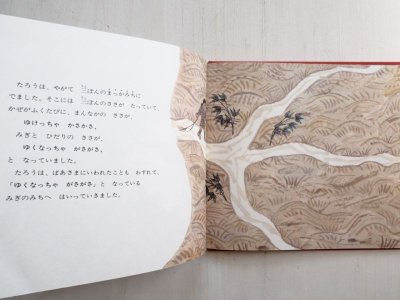 たろうは、やがて 三ぼんのまっかみちに
でました。そこには 三ぼんのささが なっていて、
かぜがふくたびに、まんなかの ささが、
ゆけっちゃ かさかさ、
みぎと ひだりの ささが、
ゆくなっちゃ がさがさ、
と なっていました。
たろうは、ばあさまにいわれたことも わすれて、
「ゆくなっちゃ がさがさ」と なっている
みぎのみちへ はいっていきました。